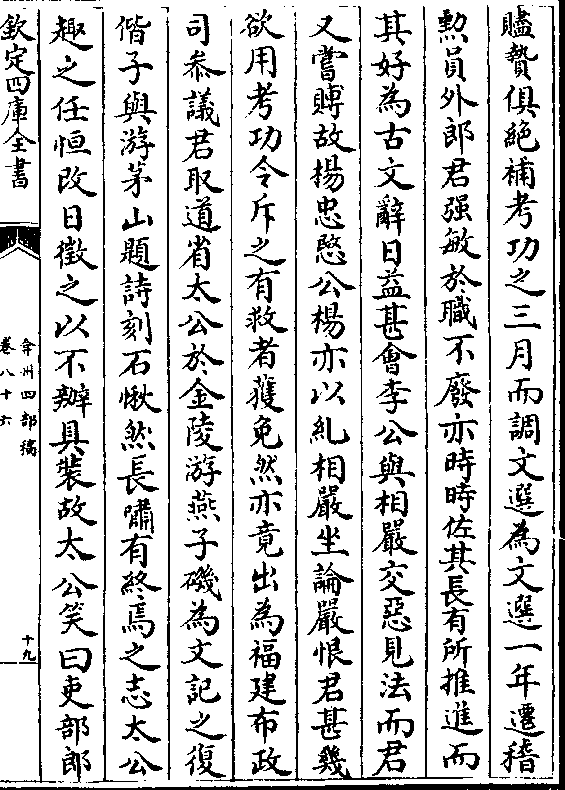 贐贄俱絶補考功之三月而調文選為文選一年遷稽
勲員外郎君强敏於職不廢亦時時佐其長有所推進而
其好為古文辭日益甚會李公與相嚴交惡見法而君
又嘗賻故揚忠愍公楊亦以糺相嚴坐論嚴恨君甚幾
欲用考功令斥之有救者獲免然亦竟出為福建布政
司叅議君取道省太公於金陵游燕子磯為文記之復
偕子與游茅山題詩刻石愀然長嘯有終焉之志太公
趣之任恒改日徴之以不辦具裝故太公笑曰吏部郎
欽定四庫全書
弇州四部稿
卷八十六
十九